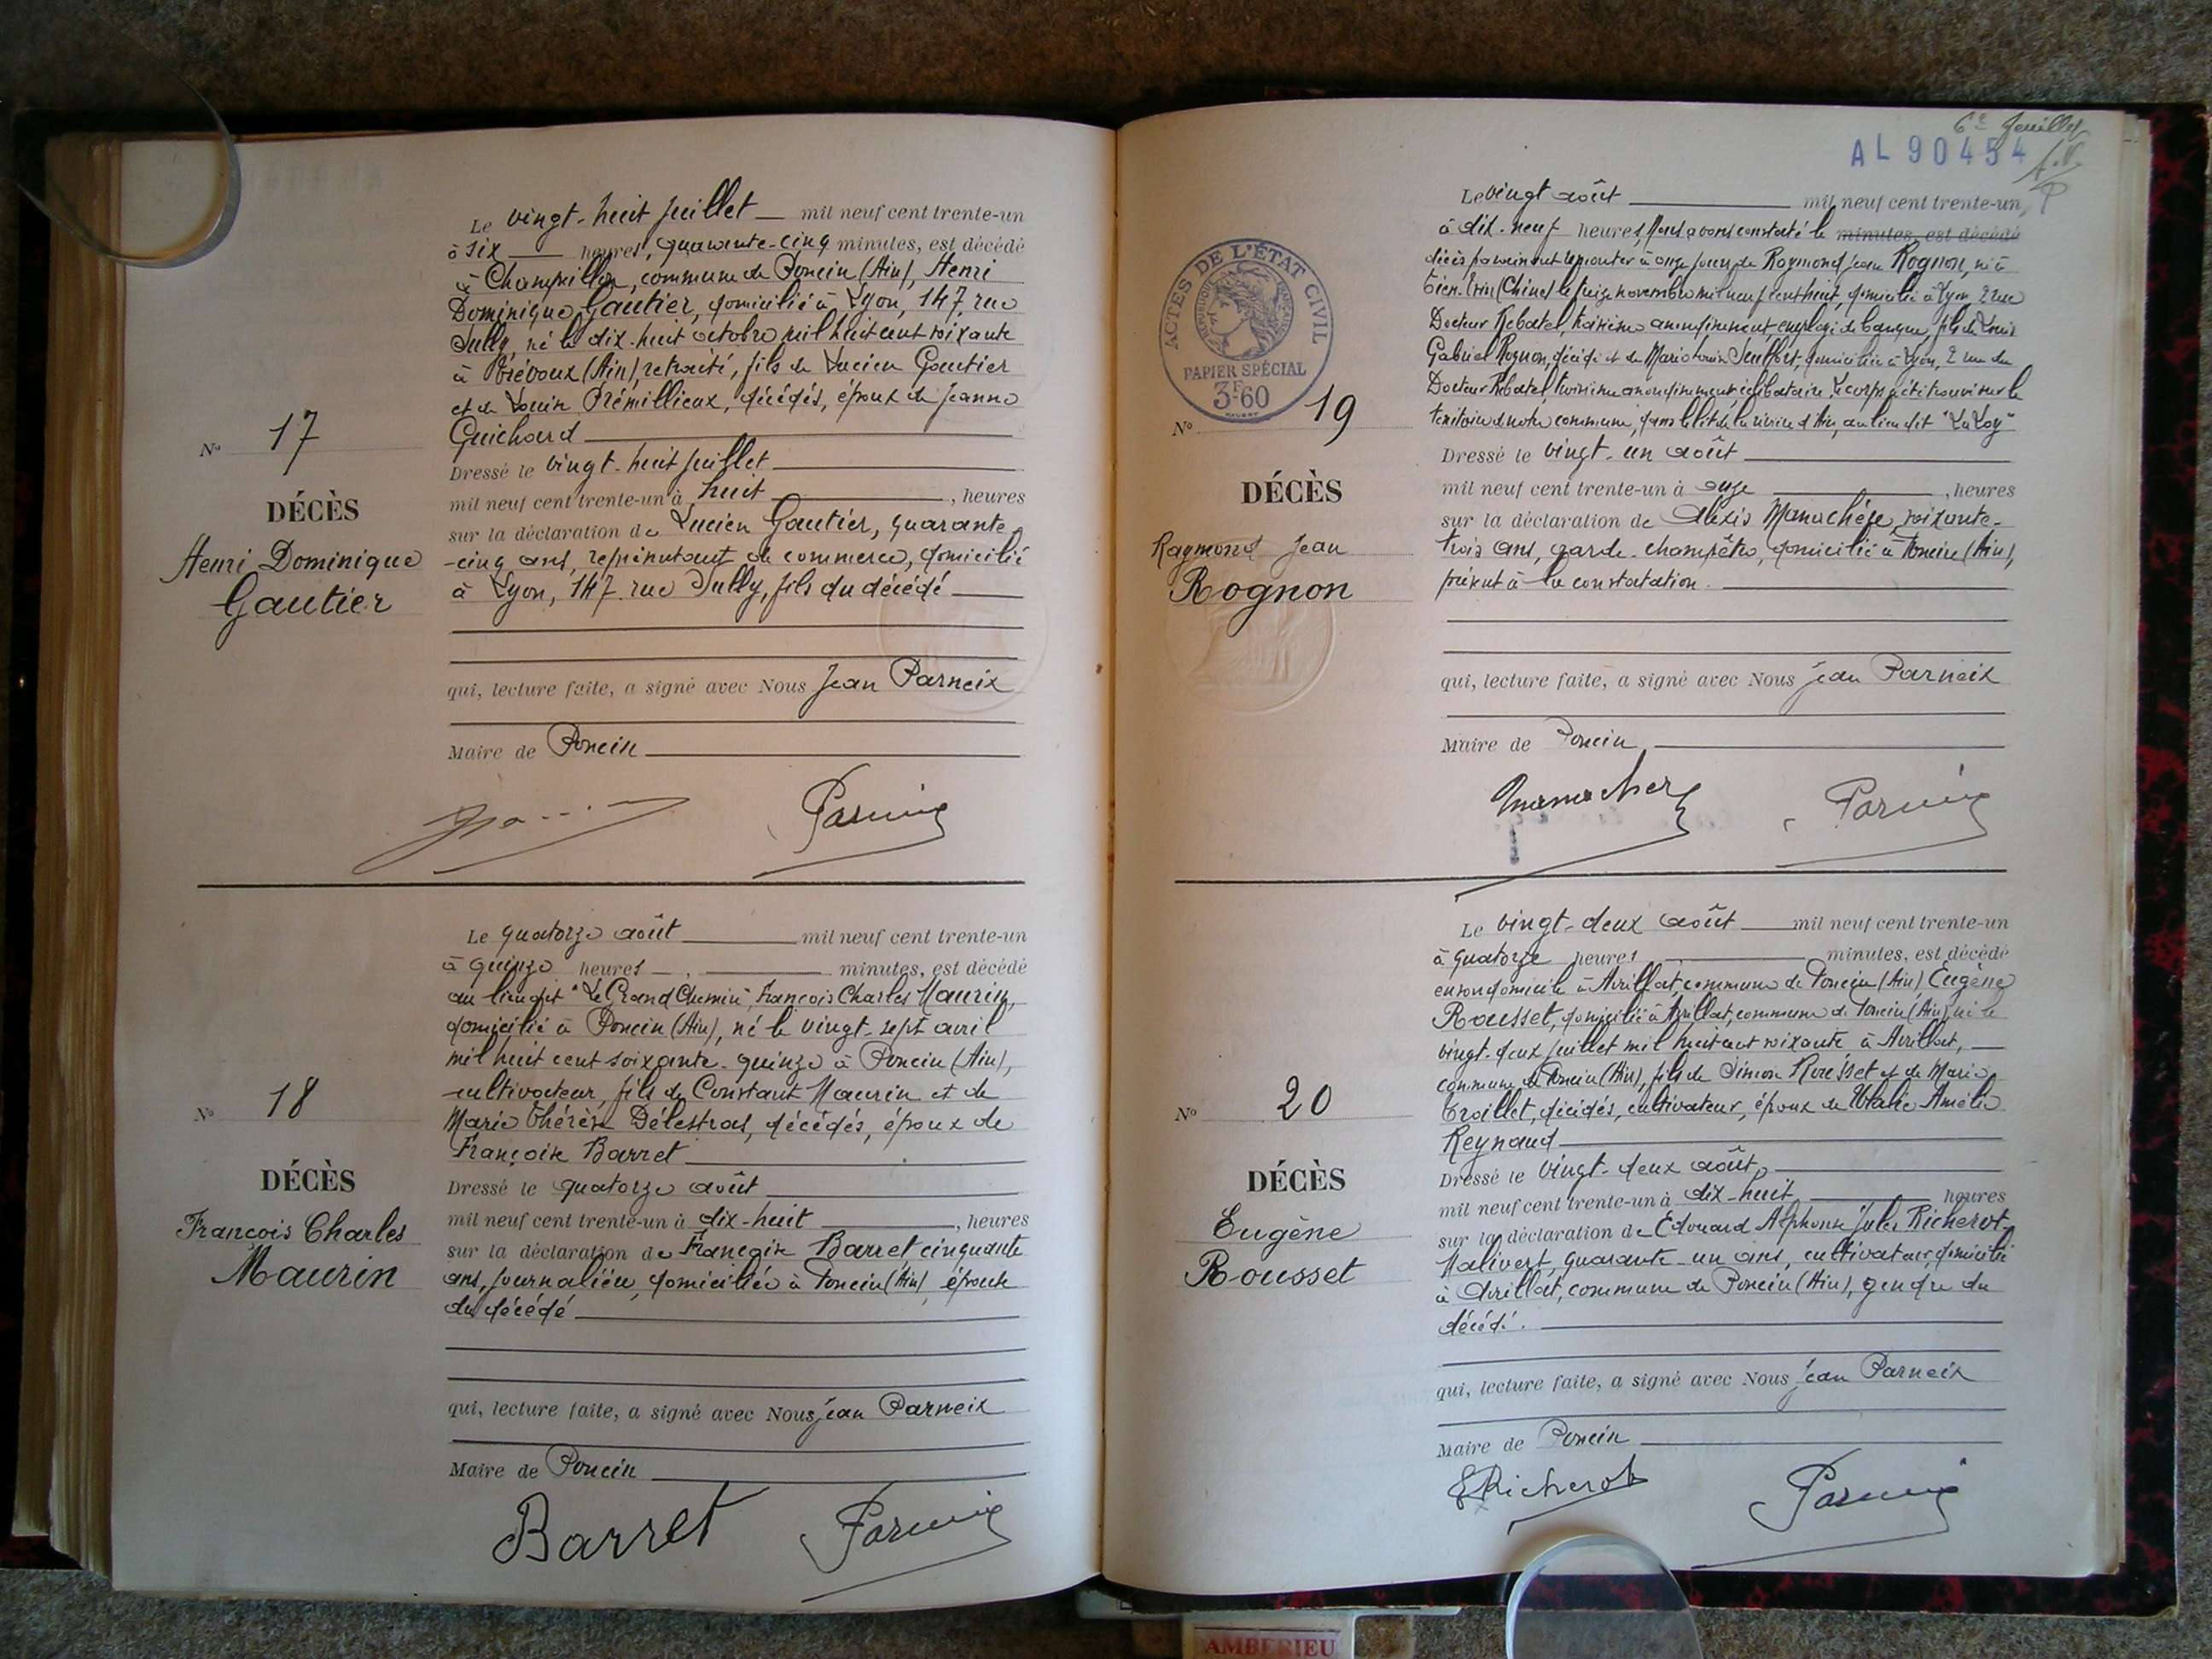 Le vingt-huit juillet mil neuf cent trente-un
à six heures, quarante-cinq minutes, est décédé
à Champeillon, commune de Poncin (Ain), Henri
Dominique Gautier, domicilié à Lyon, 147, rue
Sully, né le dix-huit octobre mil huit cent soixante
à Trévoux (Ain), retraité, fils de Lucien Gautier
et de Louise Prémillieux, décédés, époux de Jeanne
Guichard
Dressé le vingt-huit juillet
mil neuf cent trente-un à huit, heures
sur la déclaration de Lucien Gautier, quarante
-cinq ans, représentant de commerce, domicilié
à Lyon, 147 rue Sully, fils du décédé
qui, lecture faite, a signé avec Nous Jean Parneix
Maire de Poncin
Parneix
No 17
DÉCÈS
Henri Dominique
Gautier
Le quatorze août mil neuf cent trente-un
à quinze heures, minutes, est décédé
au lieu dit "Le Grand Chemin", François Charles Maurin,
domicilié à Poncin (Ain), né le vingt-sept avril
mil huit cent soixante-quinze à Poncin (Ain),
cultivateur, fils de Constant Maurin et de
Marie Thérèse Délestras, décédés, époux de
Françoise Barret
Dressé le quatorze août
mil neuf cent trente-un à dix-huit, heures
sur la déclaration de Françoise Barret, cinquante
ans, journalière, domiciliée à Poncin (Ain), épouse
du décédé
qui, lecture faite, a signé avec Nous jean Parneix
Maire de Poncin
Barret Parneix
No 18
DÉCÈS
François Charles
Maurin
6e feuillet
AL 90454
ACTES DE L'ÉTAT CIVIL
PAPIER SPÉCIAL
3F60
Le vingt août mil neuf cent trente-un,
à dix-neuf heures, Nous avons constaté le minutes, est décédé
décès paraissant remonter à onze jours de Raymond Jean Rognon, né à
Tien-Tsin (Chine) le seize novembre mil neuf cent huit, domicilié à Lyon, 2 rue
Docteur Rebatel, troisième arrondissement, employé de banque, fils de Louis
Gabriel Rognon, décédé et de Marie Louise, domiciliée à Lyon, 2 rue du
Docteur Rebatel, troisième arrondissement, célibataire. Le corps a été trouvé sur le
territoire de notre commune, dans le lit de la rivière d'Ain, au lieu dit
Dressé le vingt-un août
mil neuf cent trente-un à onze, heures
sur la déclaration de Alexis Manachère, soixante-
trois ans, garde-champêtre, domicilié à Poncin (Ain),
présent à la constatation.
qui, lecture faite, a signé avec Nous jean Parneix
Maire de Poncin
Parneix
No 19
DÉCÈS
Raymond Jean
Rognon
Le vingt-deux août mil neuf cent trente-un
à quatorze heures, minutes, est décédé
en son domicile à Avrillat, commune de Poncin (Ain) Eugène
Rousset, domicilié à Avrillat, commune de Poncin (Ain), né le
vingt-deux juillet mil huit cent soixante à Avrillat,
commune de Poncin (Ain), fils de Simon Rousset et de Marie
Troillet, décédés, cultivateur, époux de Eulalie Amélie
Reynaud
Dressé le vingt-deux août
mil neuf cent trente-un à dix-huit heures
sur la déclaration de Edouard Alphonse Jules Richerot-
Malivert, quarante-un ans, cultivateur, domicilié
à Avrillat, commune de Poncin (Ain), gendre du
décédé.
qui, lecture faite, a signé avec Nous jean Parneix
Maire de Poncin
E Richerot Parneix
No 20
DÉCÈS
Eugène
Rousset
AMBERIEU